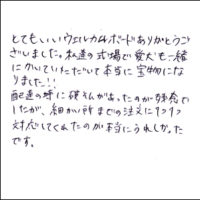 とてもいいウェルカムボードありがとうご
ざいました。私達の式場で愛犬も一緒
にかいていただいて本当に宝物にな
りました!!
配達の時に破そんがあったのが残念で
したが、細かい所までの注文に1つ1つ
対応してくれたのが本当にうれしかった
です。